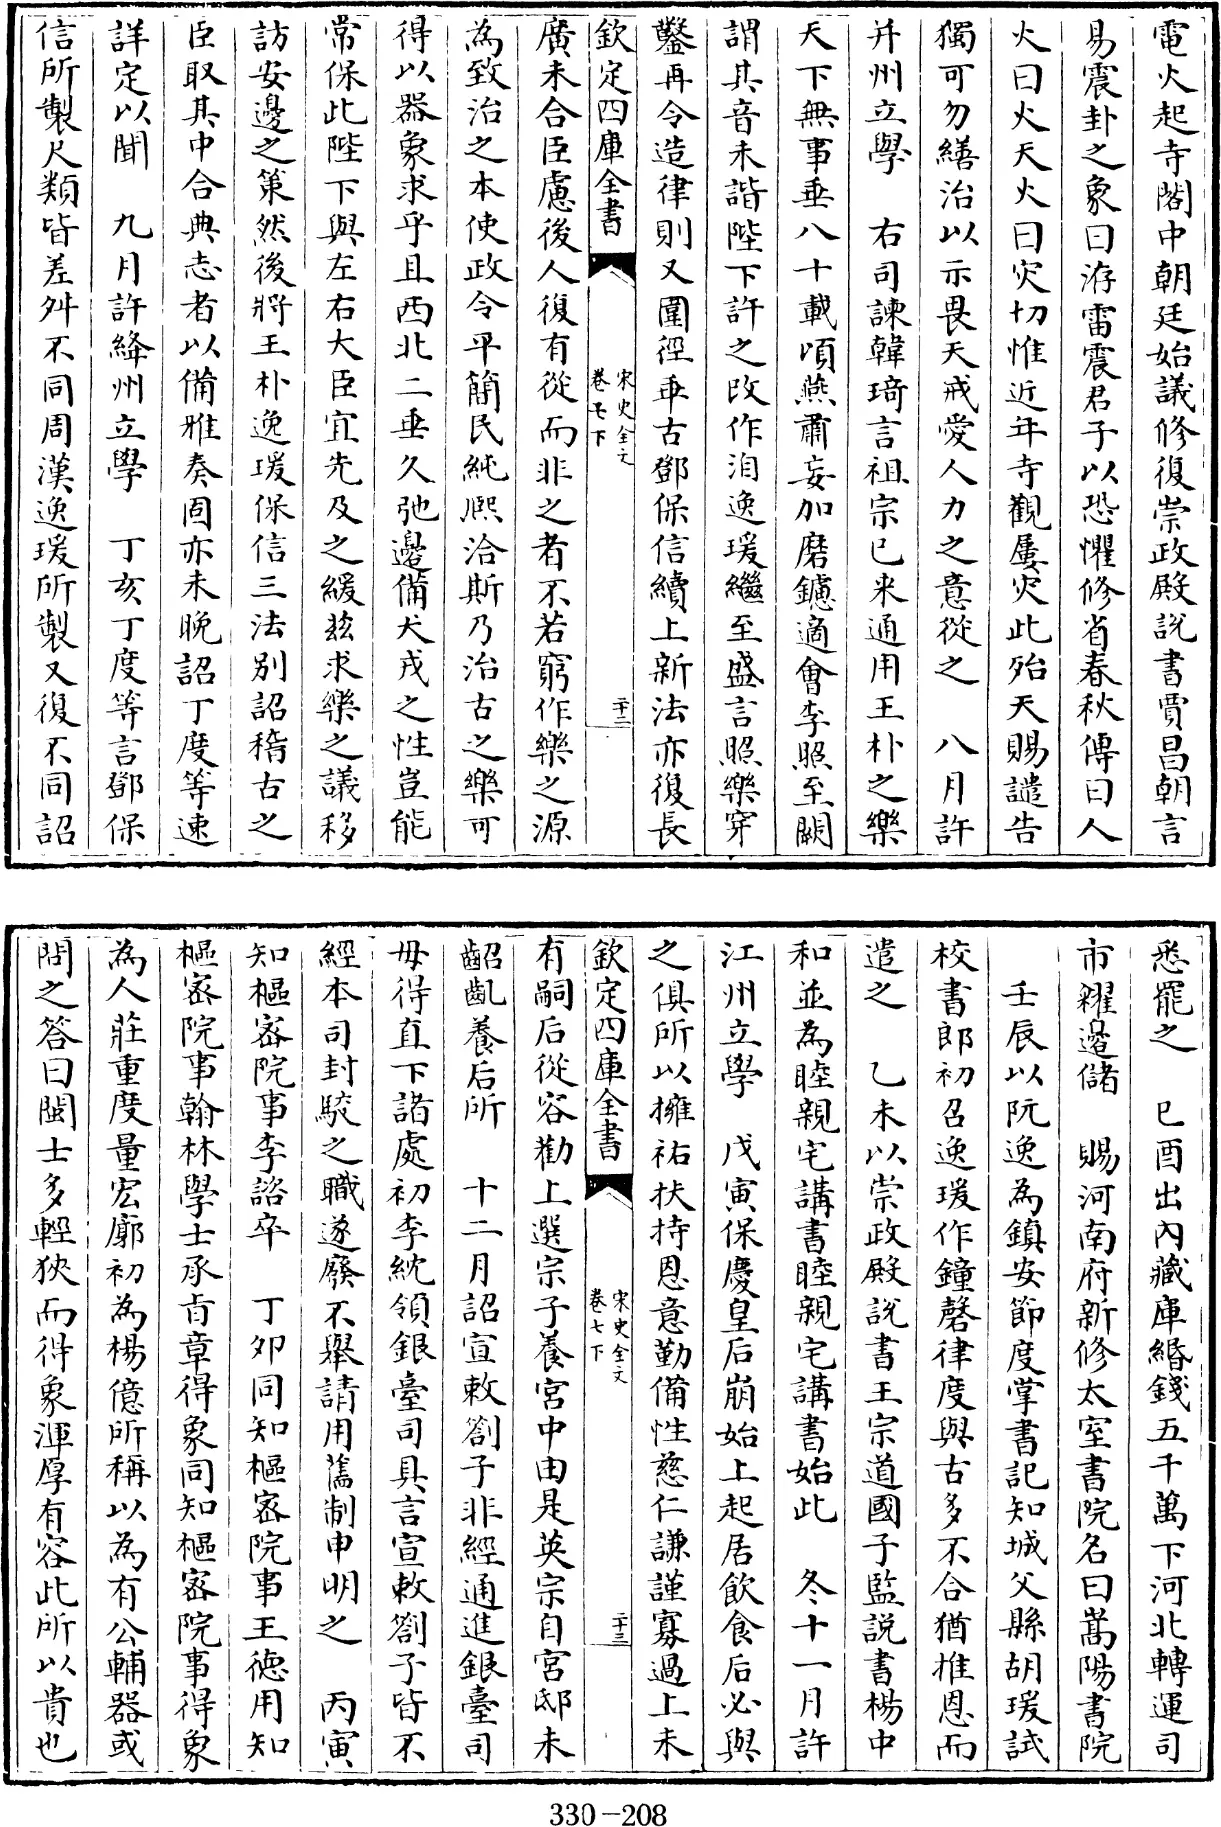 電火起寺閣中朝廷始議修復崇政殿說書賈昌朝言
易震卦之象曰洊雷震君子以恐懼修省春秋傳曰人
火曰火天火曰災切惟近年寺觀屢災此殆天賜譴告
獨可勿繕治以示畏天戒愛人力之意從之　八月許
并州立學　右司諫韓琦言祖宗已來通用王朴之樂
天下無事垂八十載頃燕肅妄加磨鑢適會李照至闕
謂其音未諧陛下許之改作洎逸瑗繼至盛言照樂穿
鑿再令造律則又圍徑乖古鄧保信續上新法亦復長
欽定四庫全書
宋史全文
卷七下
二十二
廣未合臣慮後人復有從而非之者不若窮作樂之源
為致治之本使政令平簡民純熈洽斯乃治古之樂可
得以器象求乎且西北二垂久弛邊備犬戎之性豈能
常保此陛下與左右大臣宜先及之緩兹求樂之議移
訪安邊之策然後將王朴逸瑗保信三法別詔稽古之
臣取其中合典志者以備雅奏固亦未晚詔丁度等速
詳定以聞　九月許絳州立學　丁亥丁度等言鄧保
信所製尺類皆差舛不同周漢逸瑗所製又復不同詔
悉罷之　已酉出內藏庫緡錢五千萬下河北轉運司
市糴邊儲　賜河南府新修太室書院名曰嵩陽書院
壬辰以阮逸為鎮安節度掌書記知城父縣胡瑗試
校書郎初召逸瑗作鐘磬律度與古多不合猶推恩而
遣之　乙未以崇政殿說書王宗道國子監說書楊中
和並為睦親宅講書睦親宅講書始此　冬十一月許
江州立學　戊寅保慶皇后崩始上起居飲食后必與
之俱所以擁祐扶持恩意勤備性慈仁謙謹寡過上未
欽定四庫全書
宋史全文
卷七下
二十三
有嗣后從容勸上選宗子養宮中由是英宗自宮邸未
齠齓養后所　十二月詔宣敕劄子非經通進銀臺司
毋得直下諸處初李紞領銀臺司具言宣敕劄子皆不
經本司封駮之職遂廢不舉請用舊制申明之　丙寅
知樞密院事李諮卒　丁卯同知樞密院事王德用知
樞密院事翰林學士承旨章得象同知樞密院事得象
為人莊重度量宏廓初為楊億所稱以為有公輔器或
問之答曰閩士多輕狹而得象渾厚有容此所以貴也
330-208